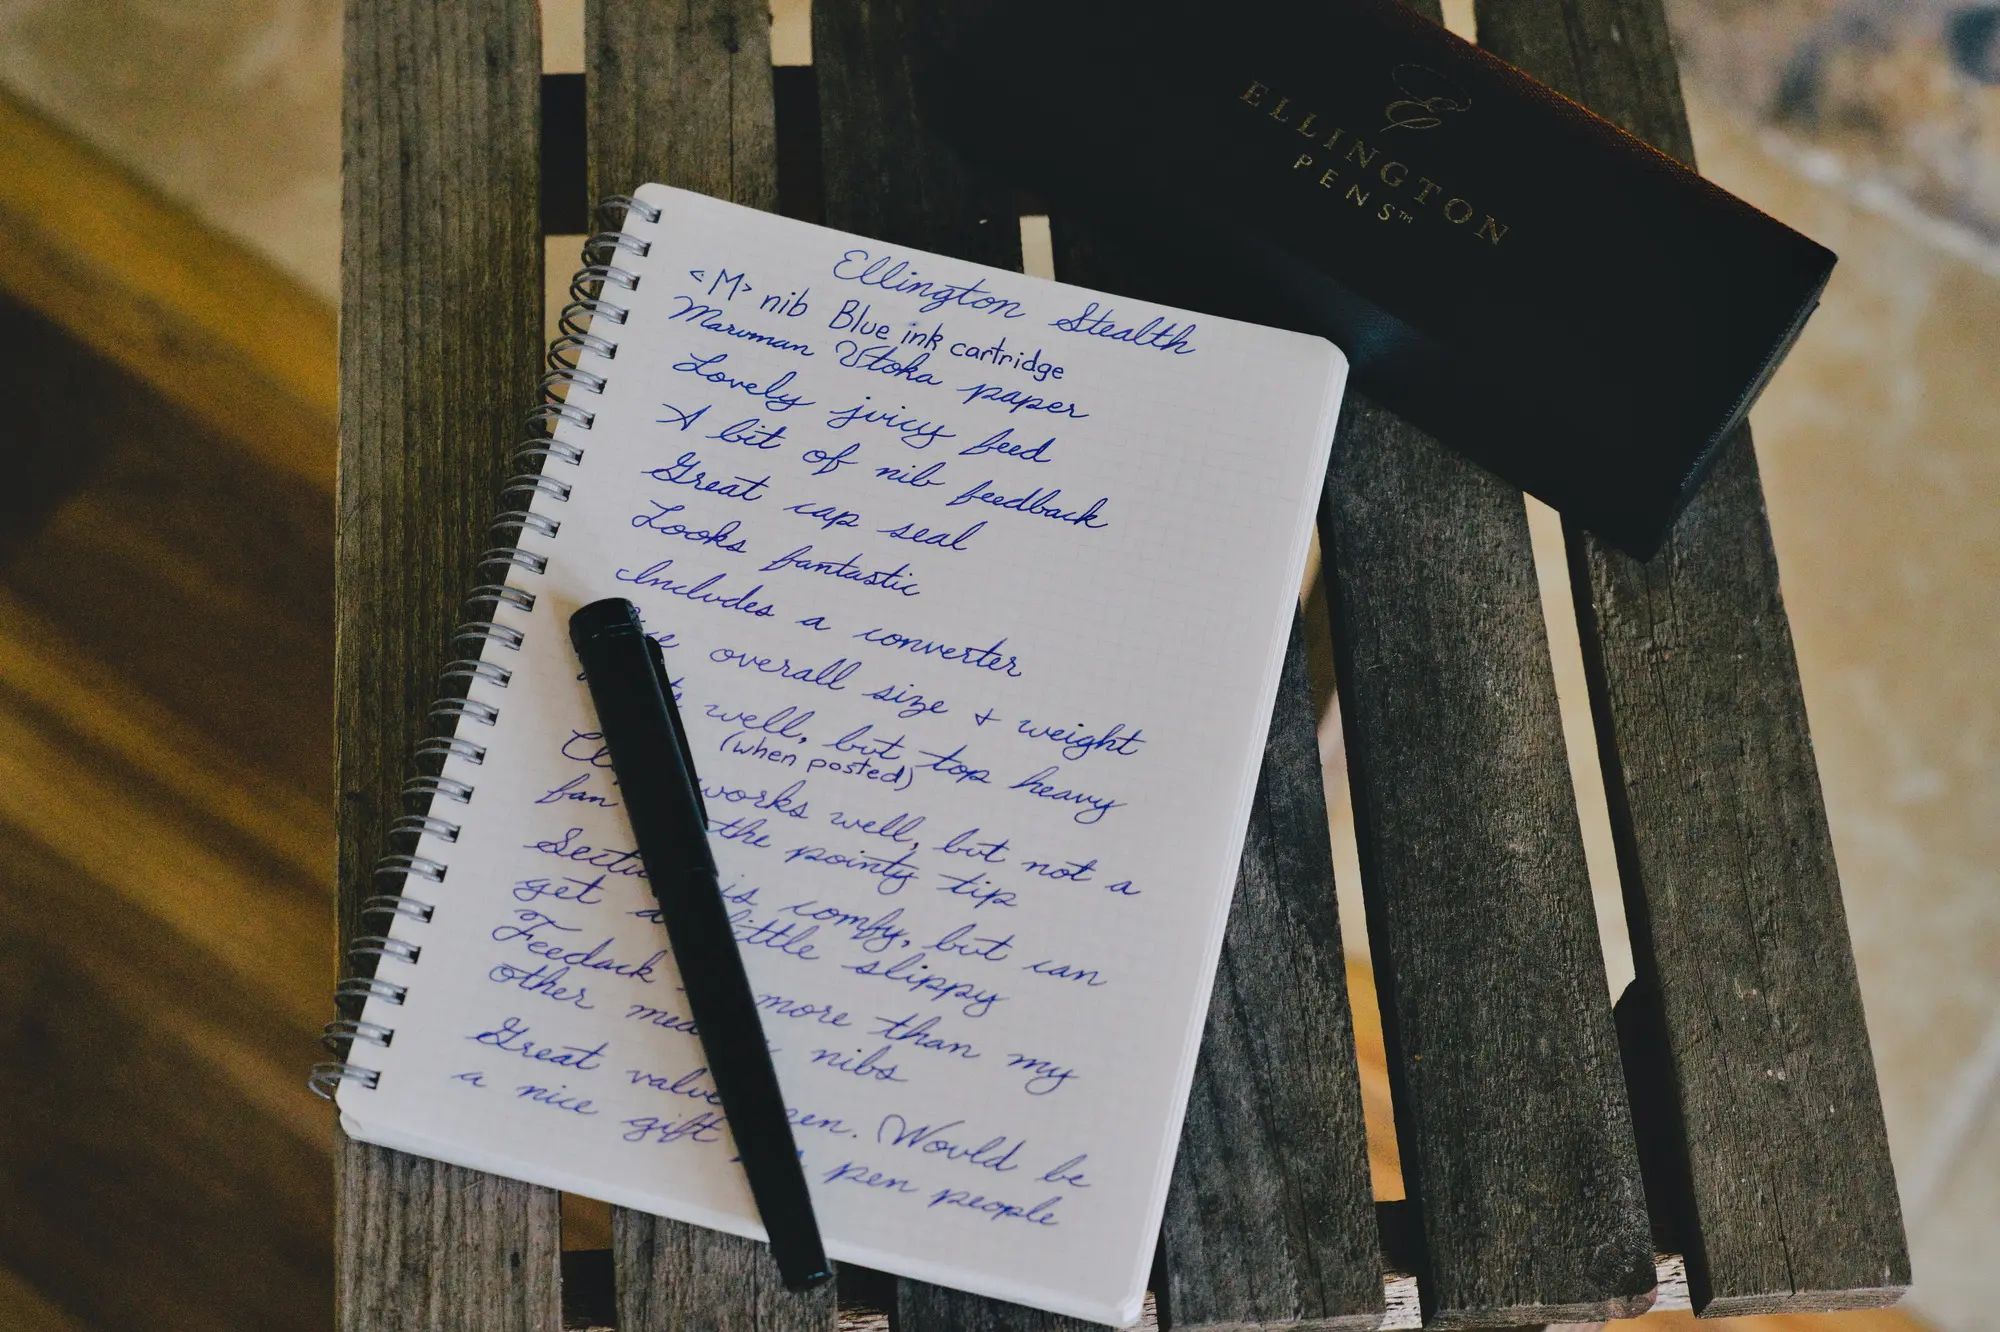 E
ELLINGTON
PENS™
Ellington Stealth
<M> nib Blue ink cartridge
Maruman Utoka paper
Lovely juicy feed
A bit of nib feedback
Great cap seal
Looks fantastic
Includes a converter
overall size + weight
well, but top heavy
(when posted)
works well, but not a
fan the pointy tip
Section is comfy, but can
get a little slippy
Feedack more than my
other nibs
Great value pen. Would be
a nice gift pen people